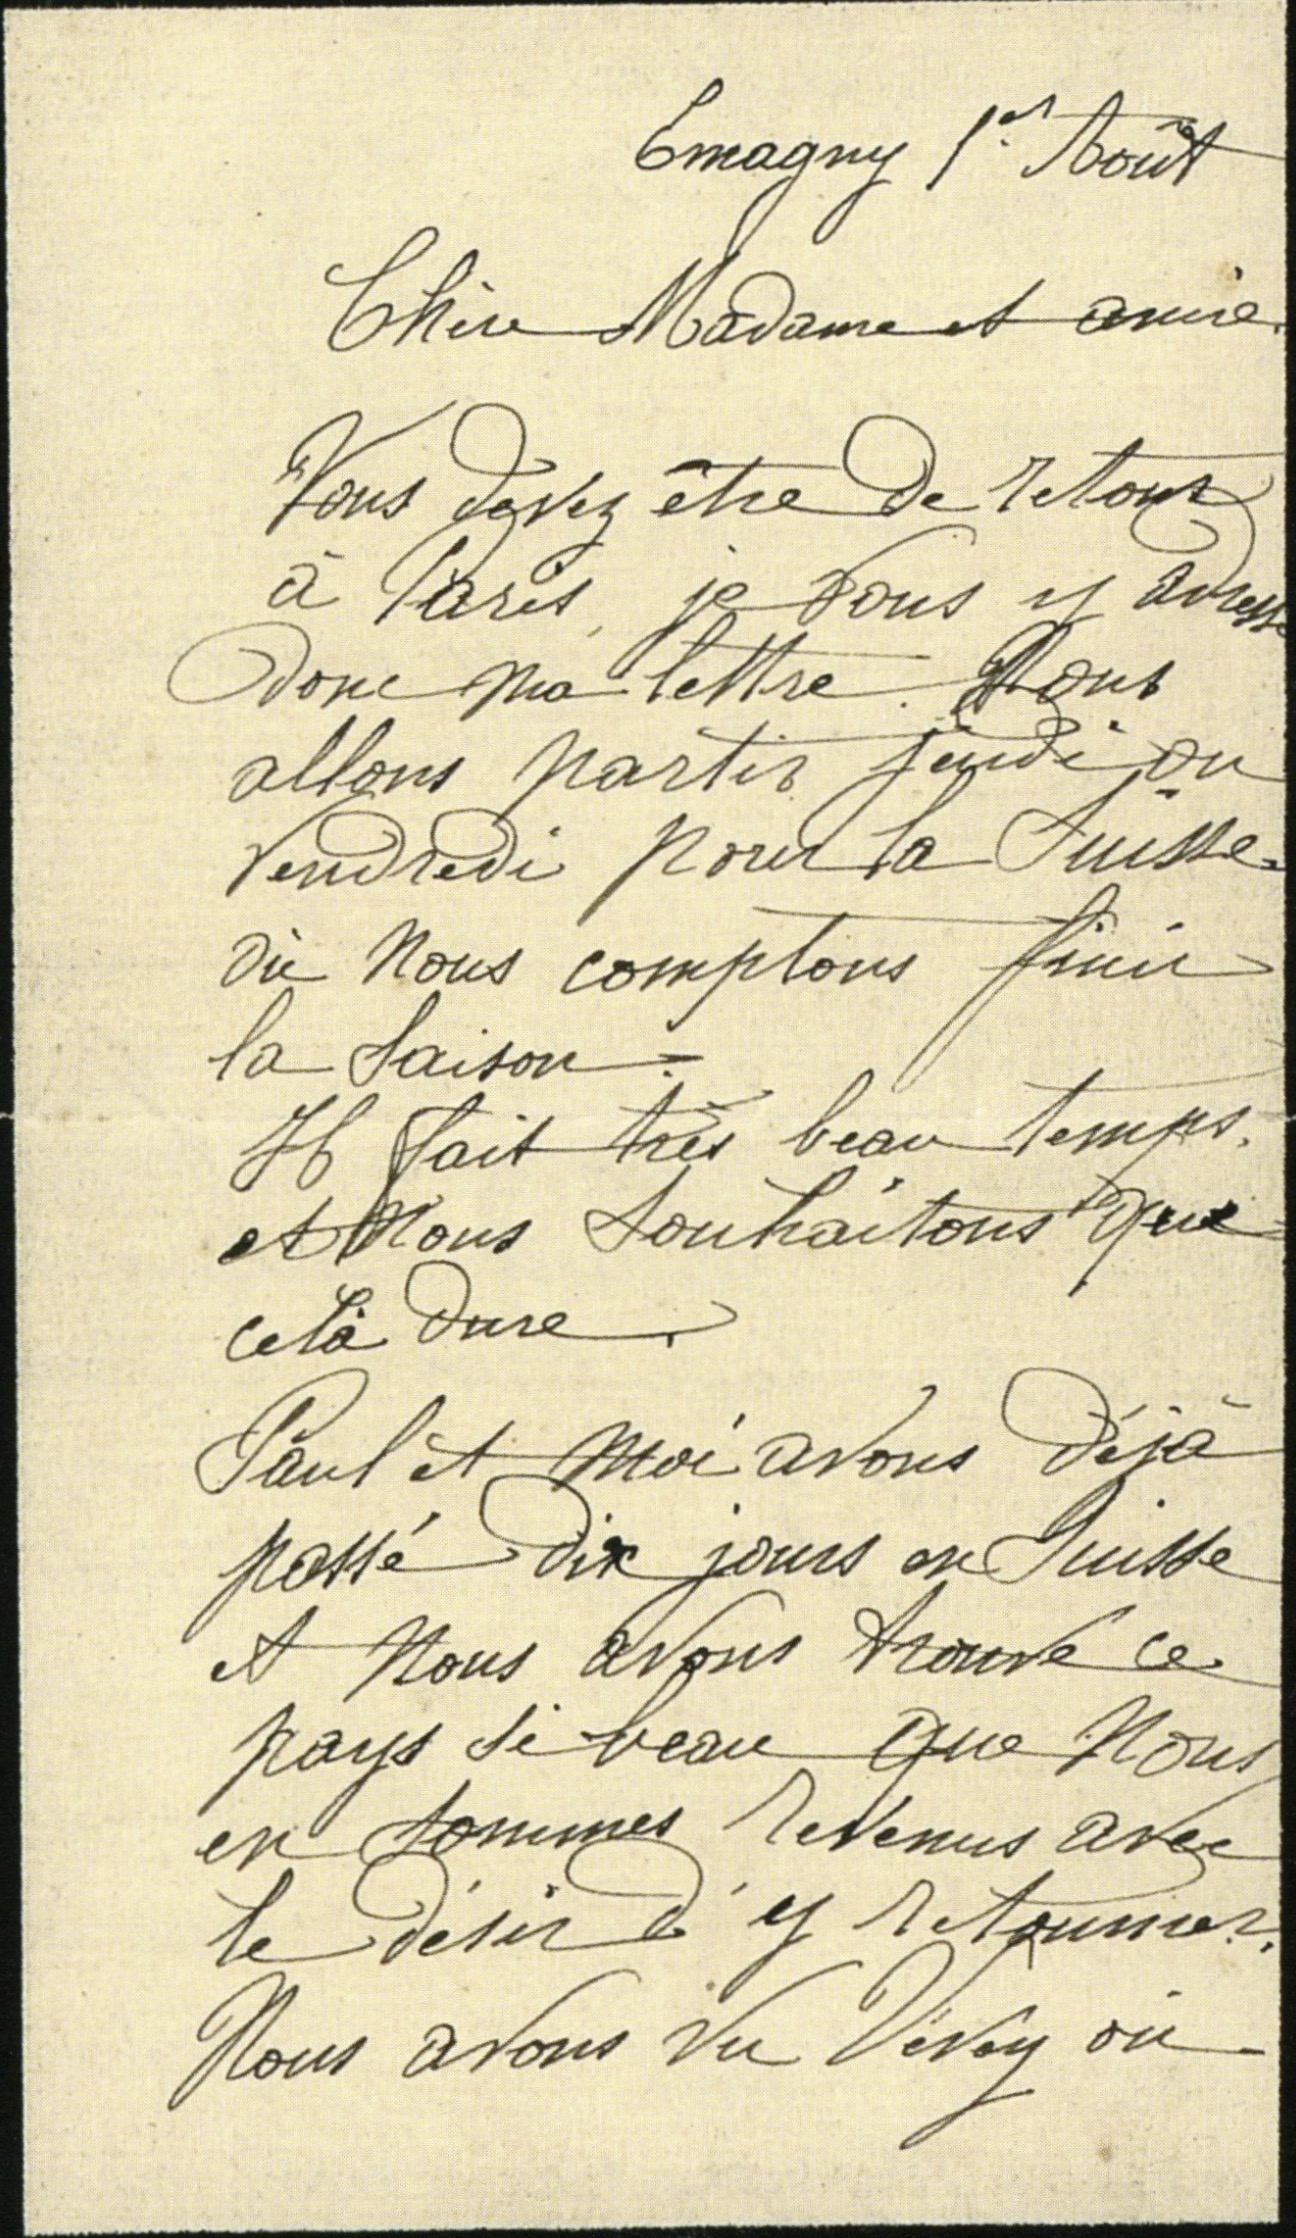 Emagny 1er Août
Chère Madame et amie.
Vous devez être de retour
à Paris, je vous y adresse
donc ma lettre. Nous
allons partir jeudi ou
vendredi pour la Suisse
où nous comptons finir
la saison.
Il fait très beau temps.
et nous souhaitons que
celà dure.
Paul et moi avons déjà
passé dix jours en Suisse
et nous avons trouvé ce
pays si beau que nous
en sommes revenus avec
le désir d'y retourner.
Nous avons vu Vevey où